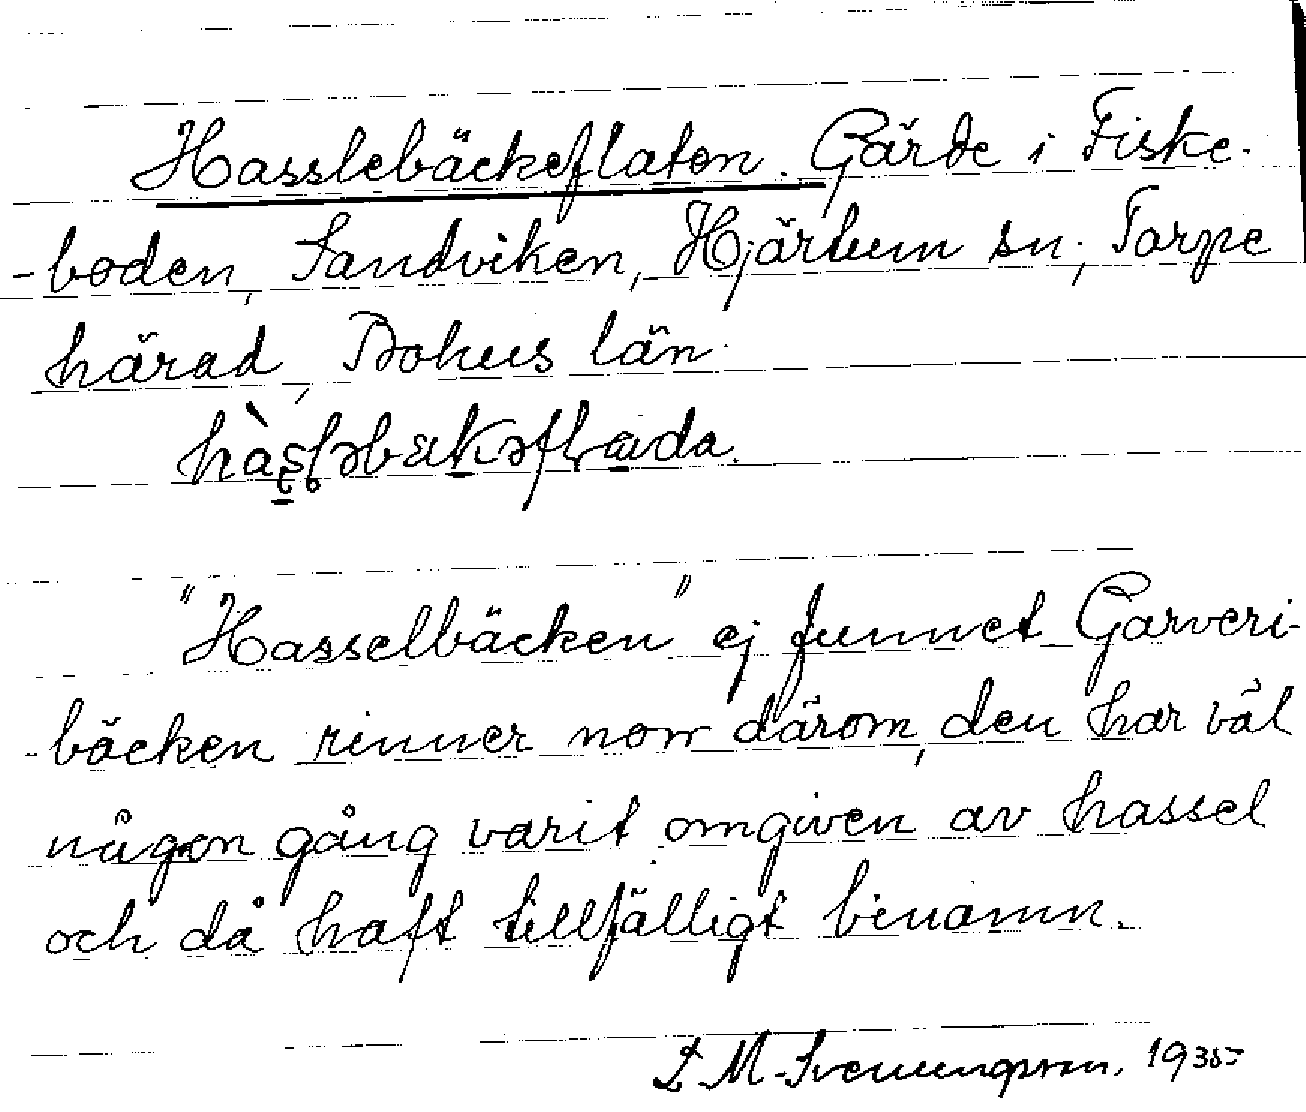 Hasslebäckeflaten. Gärde i Fiske-
-boden, Sandviken, Hjärtum sn, Torpe
härad, Bohus län.
"Hasselbäcken" ej funnet Garveri-
-bäcken rinner norr därom, den har väl
någon gång varit omgiven av hassel
och då haft tillfälligt binamn.
L. M. Svenungsson. 1935